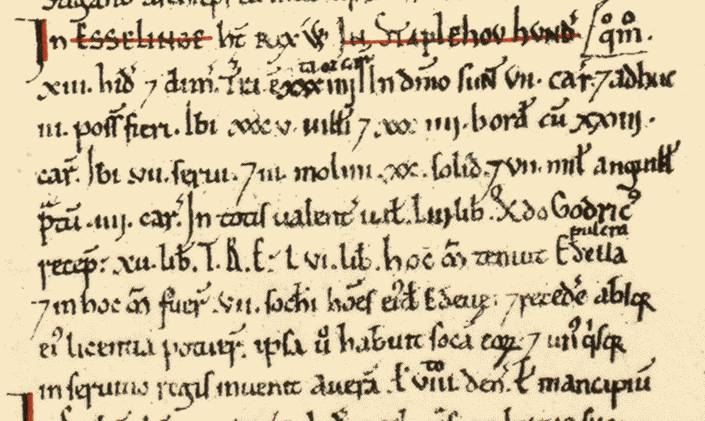 In Esselinge ht̄ Rex W̄ In Staplehou hund̄ qm̄.
xiii. hid̄ ⁊ dim̄. Tr̄a ē xxxiiii In dn̄io sun̄t vii. car̄. ⁊ adhuc
iii. poss̄ fieri. Ibi xxxv. uiłłi ⁊ xxxiiii. bord̄ cū xxiiii.
car̄. Ibi vii. serui. ⁊ iii. molini. xx. solid̄. ⁊ vii. mił anguiłł
p̄tū .iiii. car̄. In totis ualent̄ uał. Liii lib̄. Xdo Godric̄
pulcra
recep̄. xv. lib̄. T. R. E. L vi. lib̄. hoc m̄ tenuit Edeua
⁊ in hoc m̄ fuer̄. vii. sochi hoēs ei'd̄ Edeuę. ⁊ recedē absq
ei' licentia potuer̄. ipsa ū habuit socā eoꝝ ⁊ un'q'sq
in seruitio regis inuenit auerā. ł viii. den̄. ł mancipiū